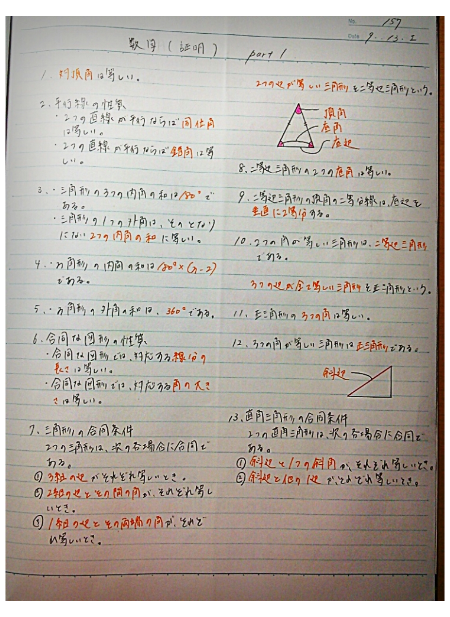 No. 157
Date 9.13.2
数学(証明) part 1
1. 対頂角は等しい。
2. 平行線の性質
・2つの直線が平行ならば同位角
は等しい。
・2つの直線が平行ならば錯角は等
しい。
3. ・三角形の3つの内角の和は180°で
ある。
・三角形の1つの外角は、そのとなり
にない2つの内角の和に等しい。
4. ・n角形の内角の和は180°×(n-2)
である。
5. ・n角形の外角の和は、360°である。
6. 合同な図形の性質
・合同な図形では、対応する線分の
長さは等しい。
・合同な図形では、対応する角の大き
さは等しい。
7. 三角形の合同条件
2つの三角形は、次の各場合に合同で
ある。
① 3組の辺がそれぞれ等しいとき。
② 2組の辺とその間の角が、それぞれ等し
いとき。
③ 1組の辺とその両端の角が、それぞ
れ等しいとき。
2つの辺が等しい三角形を二等辺三角形という。
頂角
底角
底辺
8. 二等辺三角形の2つの底角は等しい。
9. 二等辺三角形の頂角の二等分線は、底辺を
垂直に2等分する。
10. 2つの角が等しい三角形は、二等辺三角形
である。
3つの辺が全て等しい三角形を正三角形という。
11. 正三角形の3つの角は等しい。
12. 3つの角が等しい三角形は正三角形である。
斜辺
13. 直角三角形の合同条件
2つの直角三角形は、次の各場合に合同で
ある。
① 斜辺と1つの鋭角が、それぞれ等しいとき。
② 斜辺と他の1辺がそれぞれ等しいとき。